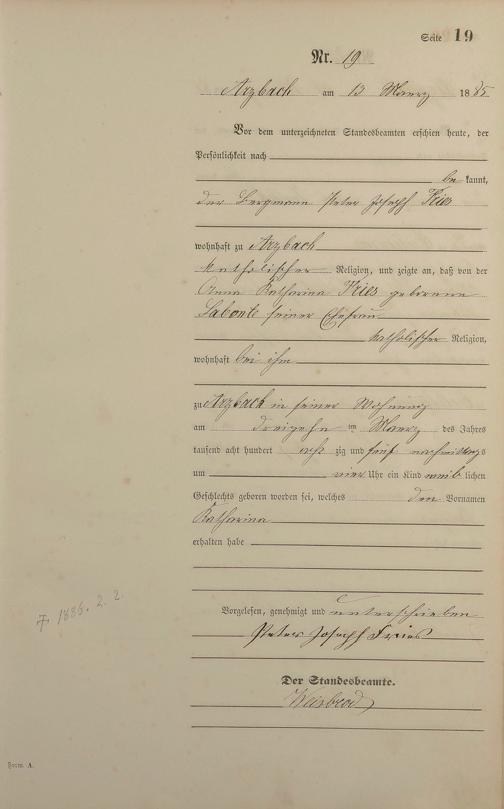 Seite 19
Nr. 19
Arzbach am 13 Maerz 1885
Vor dem unterzeichneten Standesbeamten erschien heute, der
Persönlichkeit nach
be kannt,
der Bergmann Peter Joseph Fries
wohnhaft zu Arzbach
katholischer Religion, und zeigte an, daß von der
Anna Katharina Fries geborene
Labonte seiner Ehefrau
katholischer Religion,
wohnhaft bei ihm
zu Arzbach in seiner Wohnung
am dreizehn im Maerz des Jahres
tausend acht hundert acht zig und fünf nachmittags
um vier Uhr ein Kind weib lichen
Geschlechts geboren worden sei, welches den Vornamen
Katharina
erhalten habe
Vorgelesen, genehmigt und unterschrieben
Peter Joseph Fries
Der Standesbeamte.
1886. 2. 2.
Form. A.